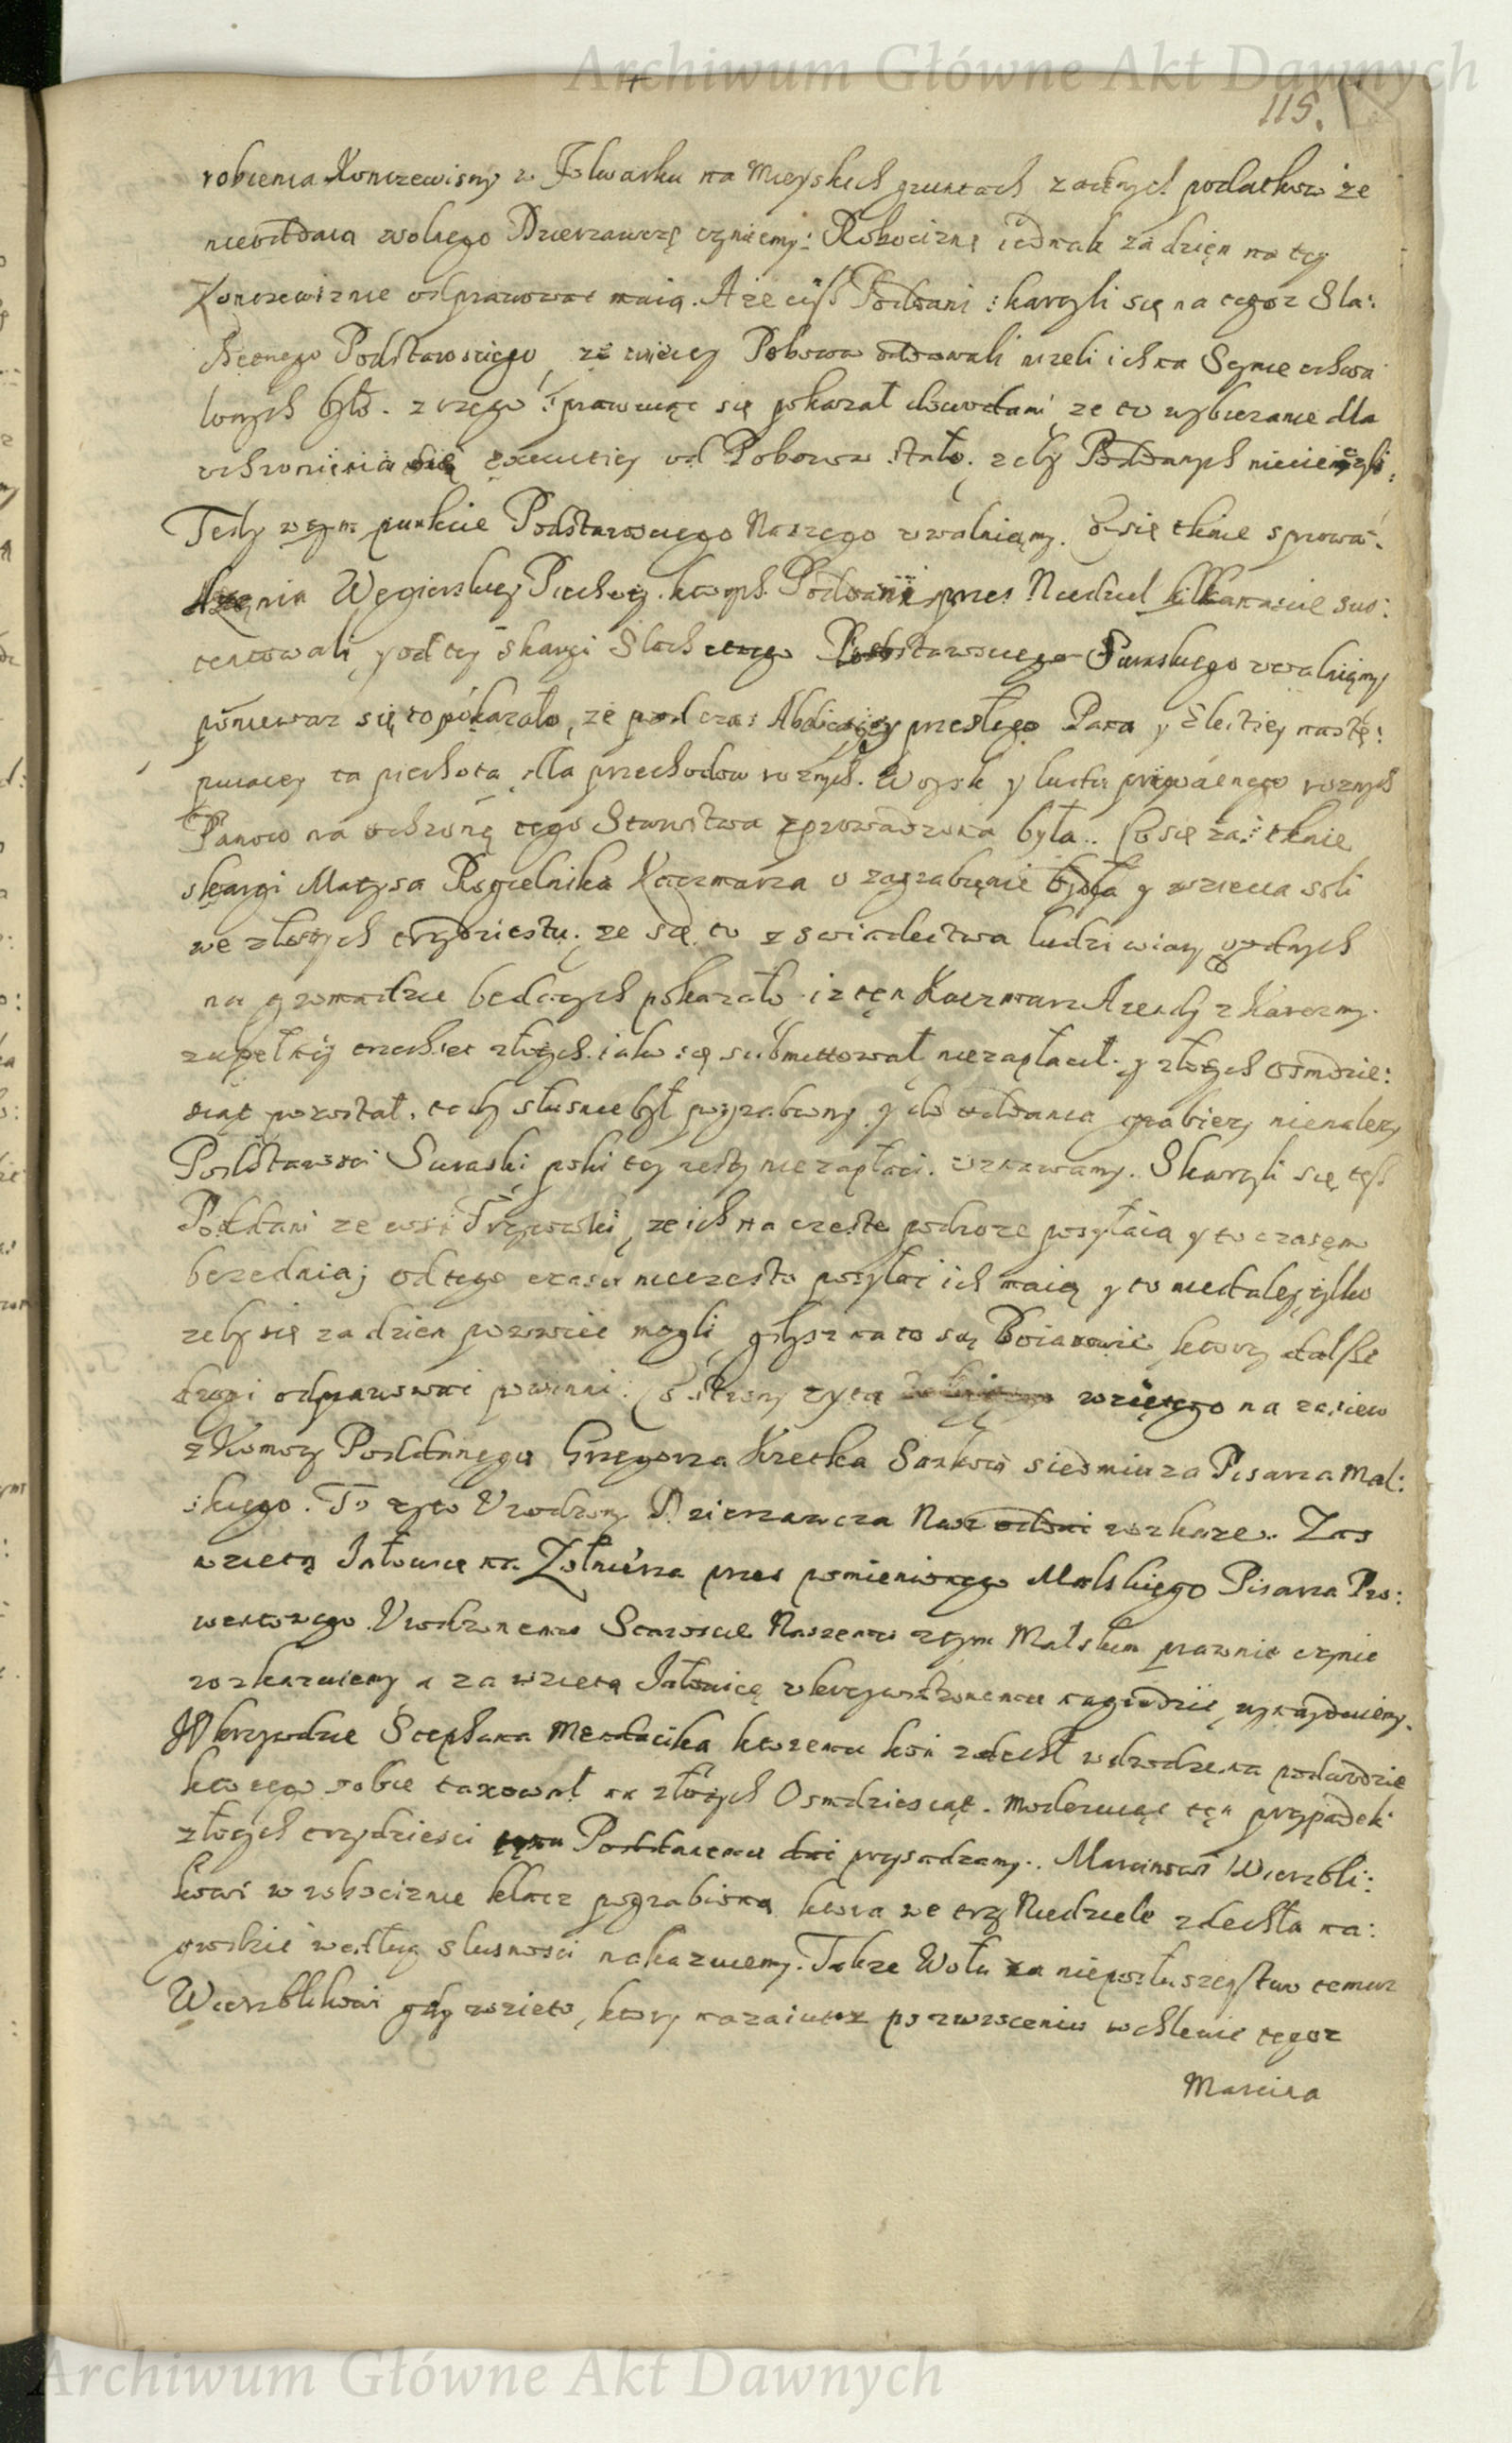 Archiwum Główne Akt Dawnych
115.
robienia Konczewisny w Folwarku na Mieyskich gruntach zadnych podatkow że
nieoddaią wolnego Dzierzawcę czyniemy: Robociznę iednak za dzięn na tey
Konczewiznie odprawowac maią. A ze ciż Poddani skarzyli się na tegoz Sla:
chętnego Podstarosciego, ze więcey Poborow oddawali nizeli ich na Seymie uchwa
lonych było. z czego sprawuiąc się pokazał dowodami ze to wybieranie dla
uchronienia się executiey od Poborow stało. zeby Poddanych nieciemięzyli,
Tedy w tym punkcie Podstarosciego Naszego uwalniąmy. Co się tknie sprowa:
dzęnia Węgierskiey Piechoty. ktorych Poddani przes Niedziel kilkanascie sus:
tentowali, y od tey skargi Slachetnego Podstarosciego Suraskiego uwalniąmy
poniewaz się to pokazało, ze podczas Abdicatiey przeszłego Pana y Electiey nastę:
puiacey ta piechota dla przechodow roznych Woysk y ludu prywatnego roznych
Panow na ochronę tego Starostwa zprowadzona była. Co się zas tknie
skargi Matysa Rogielnika Karczmarza o zagrabięnie bydła y wziecia soli
we złotych trzydziestu. ze się to z swiadectwa ludzi wiary godnych
na gromadzie bedących pokazało iz tęn Kaczmarz Arendy z Karczmy
zupełney trzechset złotych iako się submittował niezapłacił y złotych osmdzie:
siąt pozostał. tedy słusnie był pograbiony y do oddania grabiezy nienalezy
Podstarosci Suraski poki tey resty niezapłaci. uznawamy. Skarzyli się też
Poddani ze wsi, ze ich na czeste podroze posyłaią y to czasęm
bezednia; od tego czasu nieczesto posyłac ich maią y to niedaley tylko
zeby się za dzien powrocic mogli, gdysz na to są Boiarowie, ktorzy dalsze
drogi odprawowac powinni. Co strony zyta wzietego na zasiew
z Komory Poddanego Grzegorza Kretka Sankow siedmiu za Pisarza Mal:
skiego. To zyto Urodzony Dzierzawcza Nasz oddac rozkaze. Zas
wzietą Jałowicę na Zołnierza przes pomienionego Malskięgo Pisarza Pro:
wentowego. Urodzonemu Staroscie Naszemu z tym Malskim prawnie czynic
rozkazuiemy a za wzietą Jałowicę ukrzywdzonemu nagrodzic, uznayduiemy.
W krzywdzie Stephana Mendacika ktoremu kon zdechł w drodze na podwodzie
ktorego sobie taxował na złotych Osmdziesiąt. moderuiąc tęn przypadek
złotych trzydziesci tęmu Poddanemu dac przysadzamy. Marcinowi Wierzbli:
kowi w robociznie klacz pograbioną ktora we trzy Niedziele zdechła na:
grodzic według słusnosci nakazuiemy. Takze Wołu za nieposłuszęstwo temuz
Wierzblikowi gdy wzieto, ktory nazaiutrz po zwroceniu w chlewie tegoz
Marcina
Archiwum Główne Akt Dawnych